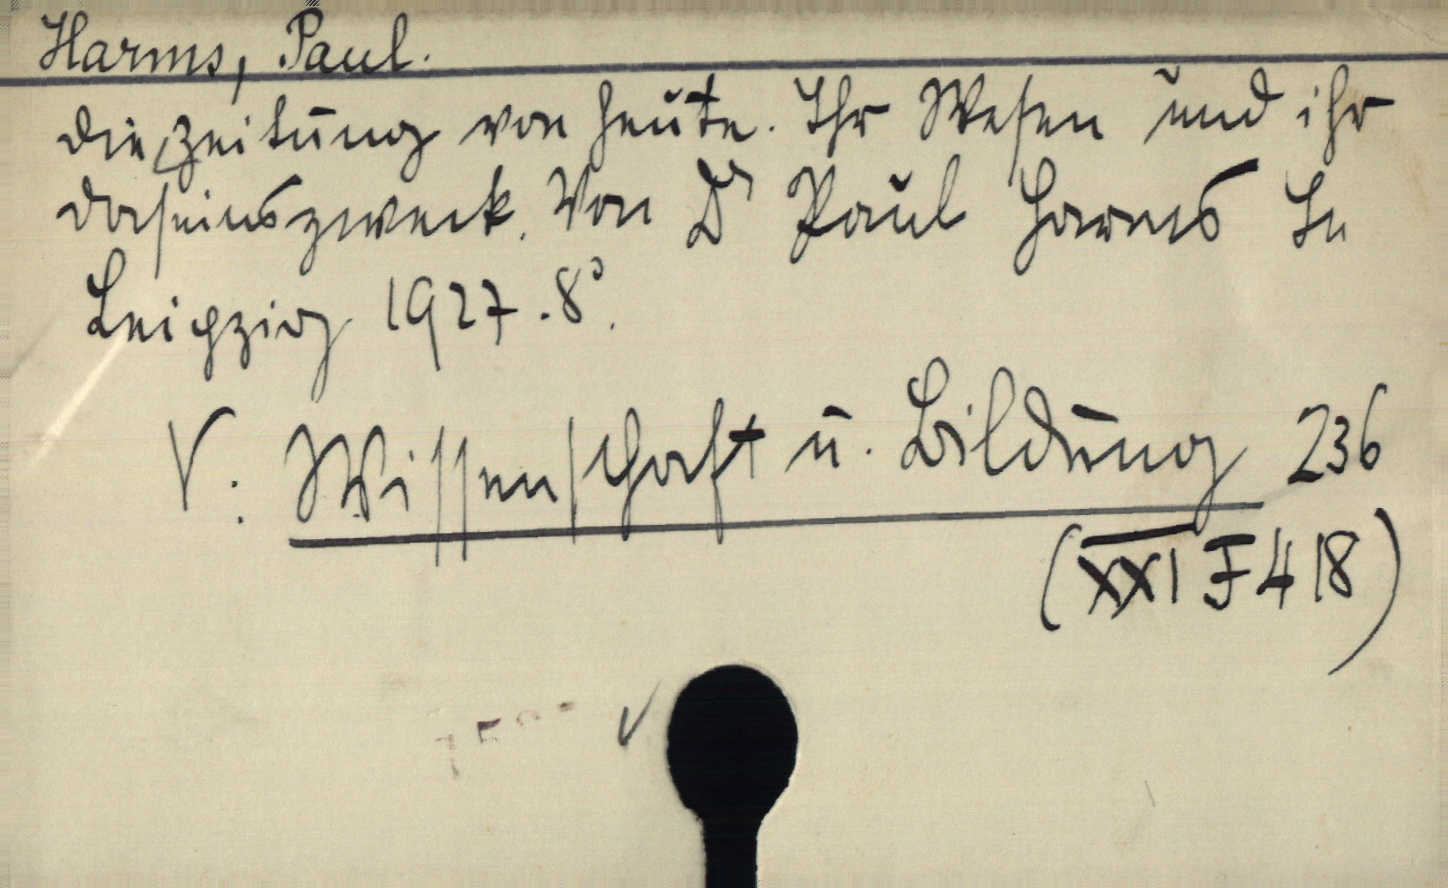 Harms, Paul.
Die Zeitung von heute. Ihr Wesen und ihr
Daseinszweck. Von Dr Paul Harms In
Leipzig 1927. 8°.
V: Wissenschaft u. Bildung 236
(XXI F 418)